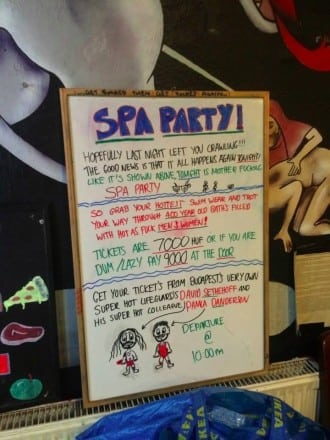 SPA PARTY!
HOPEFULLY LAST NIGHT LEFT YOU CRAWLING!!!
THE GOOD NEWS IS THAT IT ALL HAPPENS AGAIN TONIGHT!
LIKE IT'S SHOWN ABOVE, TONIGHT IS MOTHER FUCKING
SPA PARTY
SO GRAB YOUR HOTTEST SWIM WEAR AND TROT
YOUR WAY THROUGH 400 YEAR OLD BATH'S FILLED
WITH HOT AS FUCK MEN & WOMEN!
TICKETS ARE 7000 HUF OR IF YOU ARE
DUM/LAZY PAY 9000 AT THE DOOR
GET YOUR TICKET'S FROM BUDAPEST'S VERY OWN
SUPER HOT LIFEGUARDS DAVID SETHEHOFF AND
HIS SUPER HOT COLLEAGUE, PAMALA DANDERSON
DEPARTURE
@
10:00PM